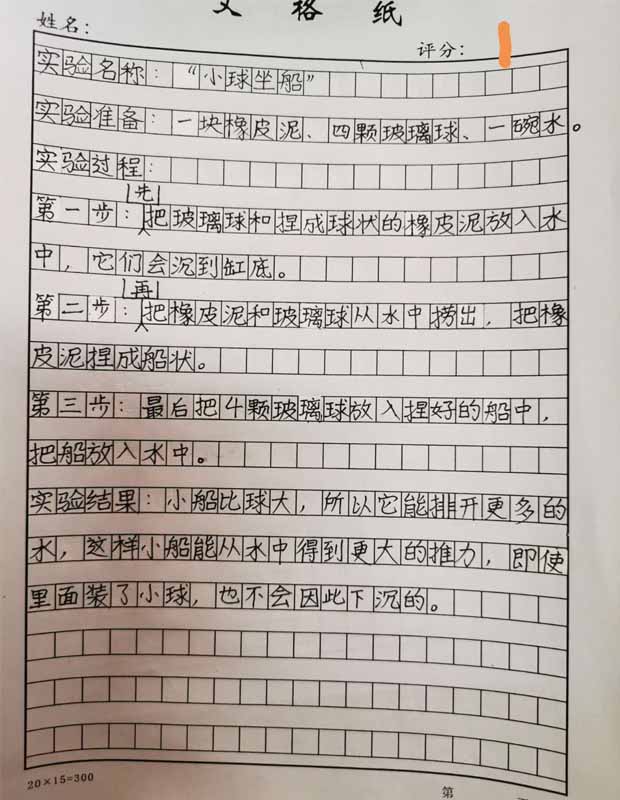 文格纸
姓名：
评分：
实验名称：“小球坐船”
实验准备：一块橡皮泥、四颗玻璃球、一碗水。
实验过程：
先
第一步：把玻璃球和捏成球状的橡皮泥放入水
中，它们会沉到缸底。
再
第二步：把橡皮泥和玻璃球从水中捞出，把橡
皮泥捏成船状。
第三步：最后把4颗玻璃球放入捏好的船中，
把船放入水中。
实验结果：小船比球大，所以它能排开更多的
水，这样小船能从水中得到更大的推力，即使
里面装了小球，也不会因此下沉的。
20×15=300
第